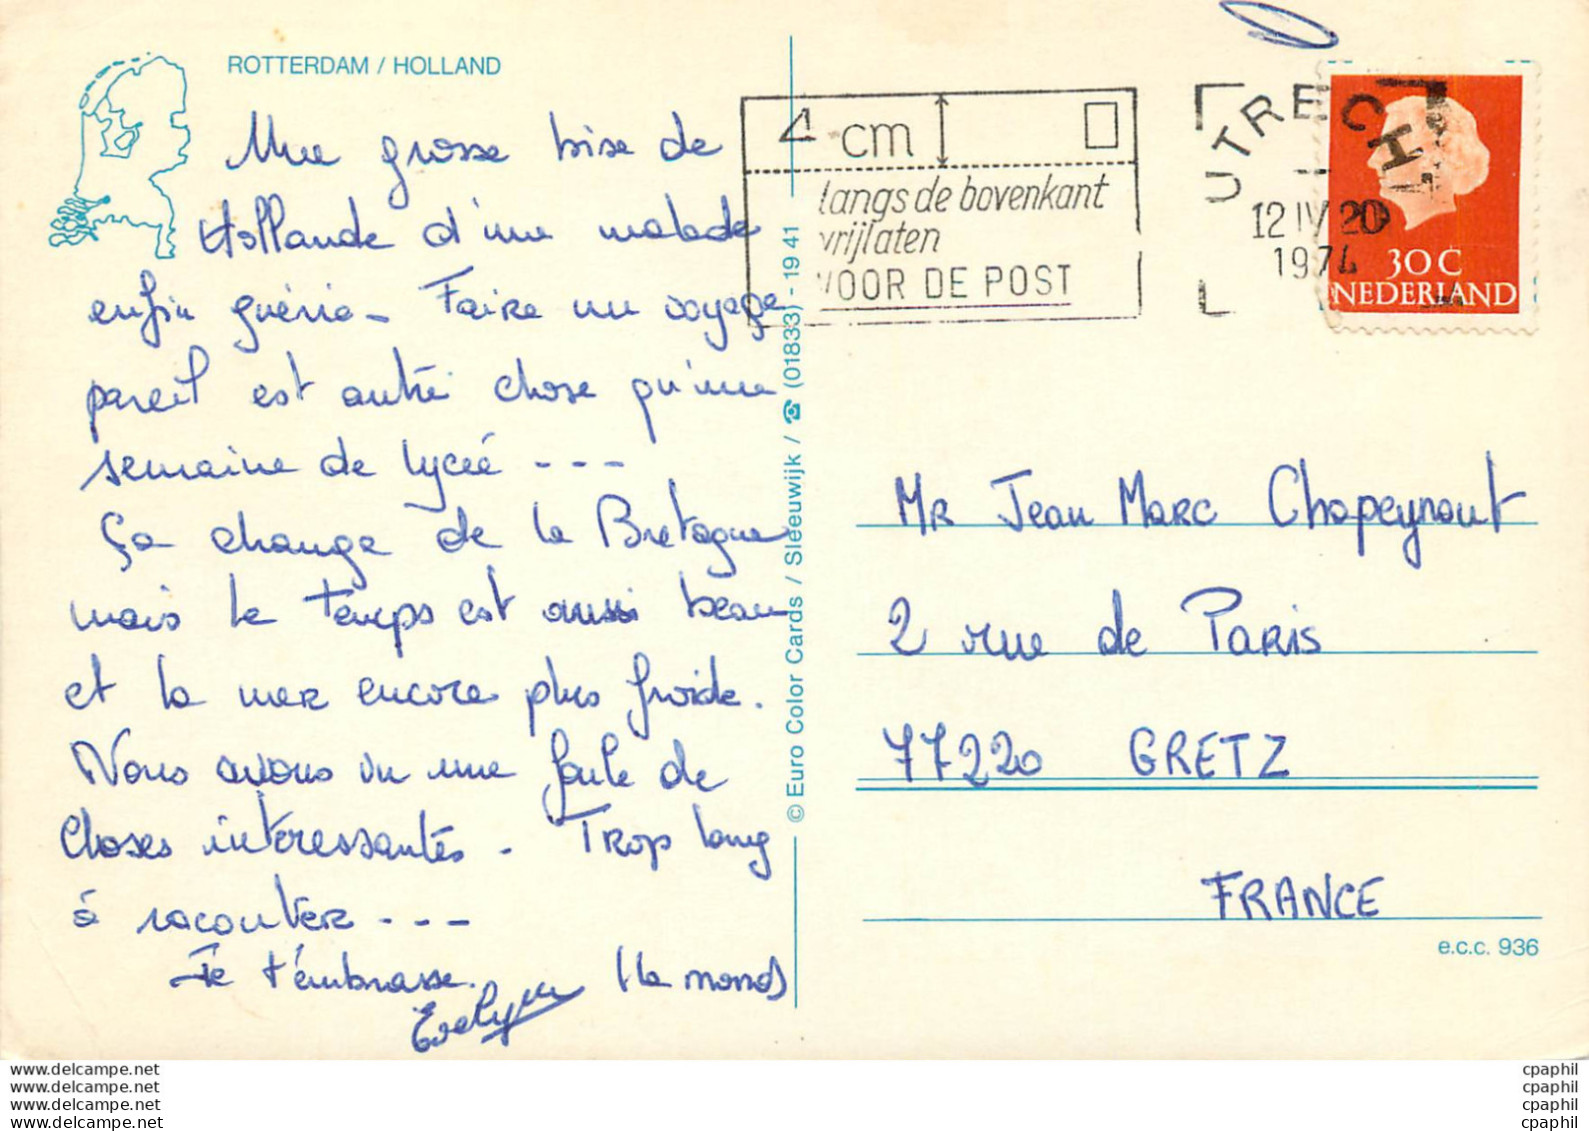 ROTTERDAM / HOLLAND
Une grosse bise de
Hollande d'une malade
enfin guérie - Faire un voyage
pareil est autre chose qu'une
semaine de lycée - - -
Ça change de la Bretagne
mais le temps est aussi beau
et la mer encore plus froide.
Nous avons vu une foule de
choses intéressantes - Trop long
à raconter - - -
Je t'embrasse.
Evelyne
© Euro Color Cards / Sleeuwijk / ☎ (01833) - 19 41
4 cm
langs de bovenkant
vrijlaten
VOOR DE POST
UTRECHT
12 IV 20
1974
30 C
NEDERLAND
Mr Jean Marc Chapeyrout
2 rue de Paris
77220 GRETZ
FRANCE
e.c.c. 936
www.delcampe.net
www.delcampe.net
www.delcampe.net
www.delcampe.net
cpaphil
cpaphil
cpaphil
cpaphil